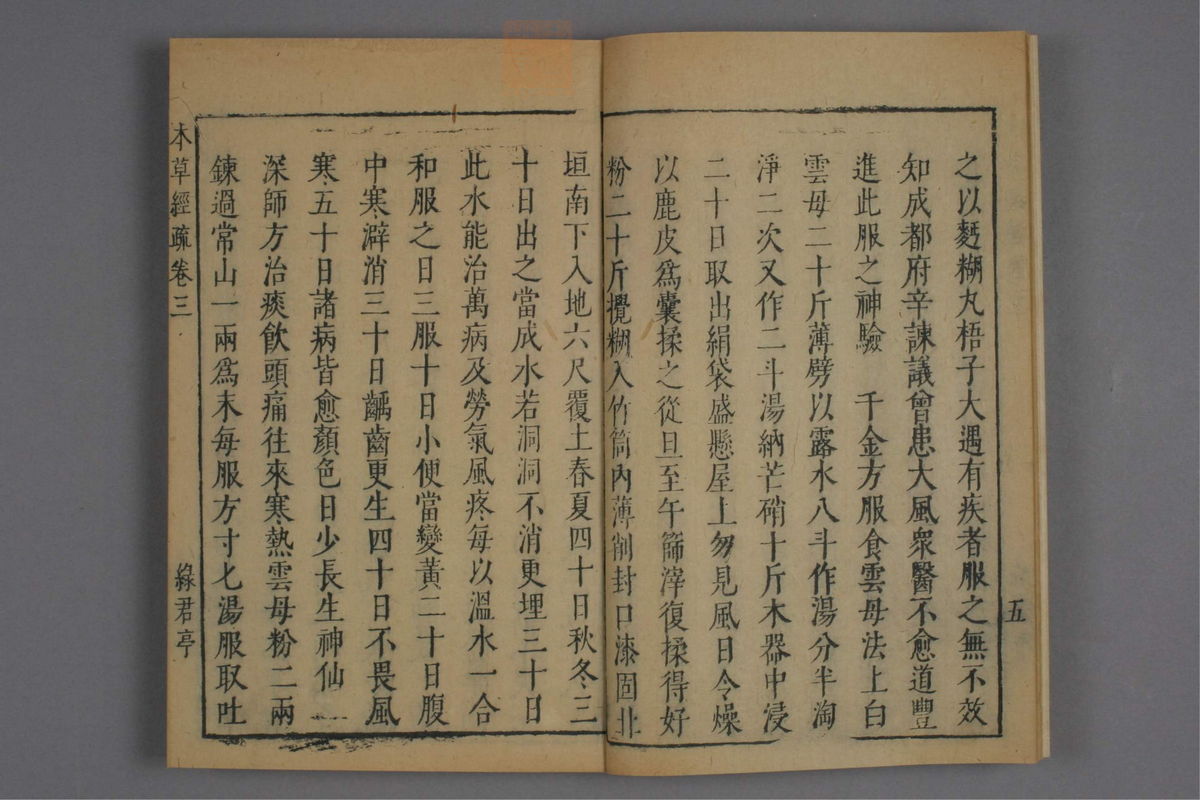 五
之以麪糊丸梧子大遇有疾者服之無不效
知成都府辛諫議曾患大風衆醫不愈道豐
進此服之神驗　千金方服食雲母法上白
雲母二十斤薄劈以露水八斗作湯分半淘
淨二次又作二斗湯納芒硝十斤木器中浸
二十日取出絹袋盛懸屋上勿見風日令燥
以鹿皮爲囊揉之從旦至午篩滓復揉得好
粉二十斤攪糊入竹筒內薄削封口漆固北
垣南下入地六尺覆土春夏四十日秋冬三
十日出之當成水若洞洞不消更埋三十日
此水能治萬病及勞氣風疼每以溫水一合
和服之日三服十日小便當變黃二十日腹
中寒澼消三十日齲齒更生四十日不畏風
寒五十日諸病皆愈顏色日少長生神仙
深師方治痰飲頭痛往來寒熱雲母粉二兩
鍊過常山一兩爲末每服方寸匕湯服取吐
本草經疏卷三
綠君亭